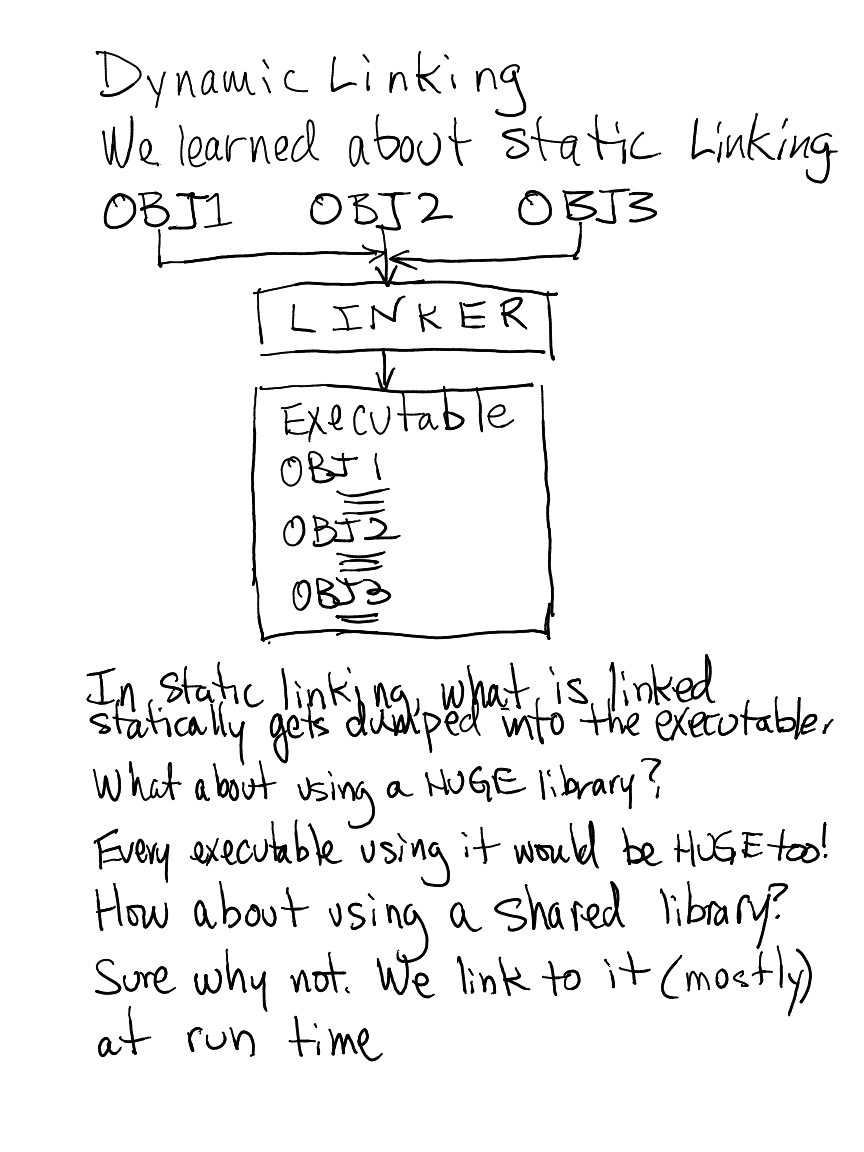 Dynamic Linking
We learned about static Linking
OBJ1 OBJ2 OBJ3
LINKER
Executable
OBJ1
OBJ2
OBJ3
In static linking, what is linked
statically gets dumped into the executable,
What about using a HUGE library?
Every executable using it would be HUGE too!
How about using a shared library?
Sure why not. We link to it (mostly)
at run time